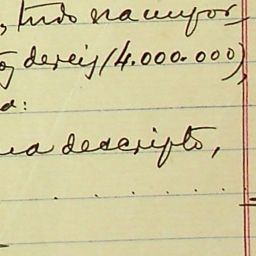 , tudo na confor
de reis (4.000.000),
a:
na descripto,